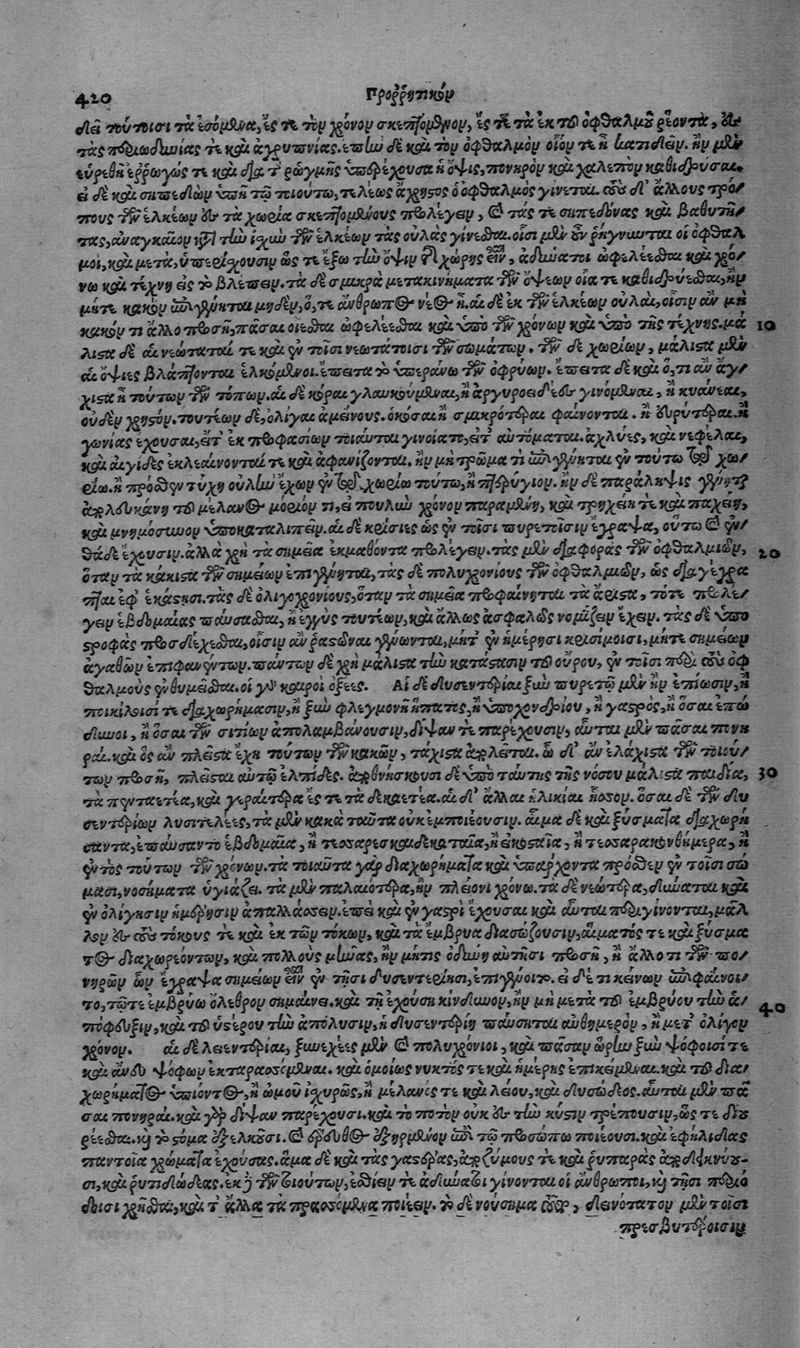 420 Προῤῥητικόν
δεῖ τούτοισι τὰ ἐσόμενα, ἔς τε τὸν χρόνον σκεπτόμενον, ἔς τε τὰ ἐκ τοῦ ὀφθαλμοῦ ῥέοντα, ἐς
τὰς περιωδυνίας τε καὶ ἀγρυπνίας. ἐπὴν δὲ καὶ τὸν ὀφθαλμὸν οἷόν τε ᾖ κατιδεῖν. ἢν μὲν
εὑρεθῇ ἐῤῥωγὼς τε καὶ διὰ τ̃ ῥωγμῆς ὑπερέχουσα ἡ ὄψις, πονηρὸν καὶ χαλεπὸν καθιδρῦσαι.
εἰ δὲ καὶ σηπεδὼν ὑπῇ τῷ τοιούτῳ, τελέως ἄχρηστος ὁ ὀφθαλμὸς γίνεται. τοὺς δ' ἄλλους τρό-
πους τῶν ἑλκέων ἐς τὰ χωρία σκεπτομένους προλέγειν, καὶ τάς τε σηπεδόνας καὶ βαθύτη-
τας, ἀναγκαῖον κατὰ τὴν ἰσχὺν τῶν ἑλκέων τὰς οὐλὰς γίνεσθαι. οἷσι μὲν οὖν ῥήγνυνται οἱ ὀφθαλ
μοὶ, καὶ μετὰ, ὑπερίσχουσιν ὥς τε ἔξω τὴν ὄψιν διαχώρης εἶναι, ἀδύνατοι ὠφελέεσθαι καὶ χρό-
νῳ καὶ τέχνῃ εἰς τὸ βλέπειν. τὰ δὲ σμικρὰ μετακινήματα τῶν ὄψεων οἷά τε καθιδρύεσθαι, ἢν
μήτε κακὸν ἐπιγένηται μηδὲν, ὅ, τε ἄνθρωπος νέος ᾖ. αἱ δὲ ἐκ τῶν ἑλκέων οὐλαὶ, οἷσιν ἂν μὴ
κακόν τι ἄλλο προσῇ, πᾶσαι οἷαι τε ὠφελέεσθαι καὶ ὑπὸ τῶν χρόνων καὶ ὑπὸ τῆς τέχνης. μά 10
λιστα δὲ αἱ νεώταταί τε καὶ ἐν τοῖσι νεωτάτοισι τῶν σωμάτων. τῶν δὲ χωρίων, μάλιστα μὲν
αἱ ὄψιες βλάπτονται ἑλκόμενοι. ἔπειτα τὸ ὑπεράνω τῶν ὀφρύων. ἔπειτα δὲ καὶ ὅ, τι ἂν ἄγ-
χιστα ᾖ τούτων τῶν τόπων. αἱ δὲ κόραι γλαυκούμεναι, ἢ ἀργυροειδέες γινόμεναι, ἢ κυάνεαι,
οὐδὲν χρηστόν. τουτέων δὲ, ὀλίγαι ἀμείνους. ὁκόσαι ἢ σμικρότεραι φαίνονται. ἢ εὐρύτεραι. ἢ
γωνίας ἔχουσαι, εἴτ' ἐκ προφασίων τοιαῦται γινοίατο, εἴτ' αὐτόματοι. ἀχλύες, καὶ νεφέλαι,
καὶ αἰγίδες ἐκλεαίνονταί τε καὶ ἀφανίζονται, ἢν μὴ τρῶμα τι ἐπιγένηται ἐν τούτῳ τῷ χω-
ρίῳ. ἢ πρόσθεν τύχῃ οὐλὴν ἔχων ἐν τῷ χωρίῳ τούτῳ, ἢ πτερύγιον. ἢν δὲ παράληψις γένηται
ἀπολευκάνῃ τοῦ μέλανος μόριόν τι, εἰ πουλὺν χρόνον παραμένῃ, καὶ τρηχείη τε καὶ παχείη,
καὶ μνημόσυνον ὑποκαταλιπεῖν. αἱ δὲ κρίσιες ὡς ἐν τοῖσι πυρετοῖσιν ἔγραψα, οὕτω καὶ ἐν-
θάδε ἔχουσιν. ἀλλὰ χρὴ τὰ σημεῖα ἐκμαθόντα προλέγειν. τὰς μὲν διαφορὰς τῶν ὀφθαλμιῶν, 20
ὅταν τὰ κάκιστα τῶν σημείων ἐπιγένηται, τὰς δὲ πολυχρονίους τῶν ὀφθαλμιῶν, ὡς διαγέγρα
πται ἐφ' ἑκάστῃσι. τὰς δὲ ὀλιγοχρονίους, ὅταν τὰ σημεῖα προφαίνηται τὰ ἄριστα, τότε προλέ-
γειν ἑβδομαίας παύσασθαι, ἢ ἐγγὺς τουτέων, καὶ ἄλλως ἀσφαλῶς νομίζειν ἔχειν. τὰς δὲ ὑπο
στροφὰς προσδέχεσθαι, οἷσιν ἂν ῥαστῶναι γένωνται, μήτ' ἐν ἡμέρῃσι κρισίμοισι, μήτε σημείων
ἀγαθῶν ἐπιφανέντων. πάντων δὲ χρὴ μάλιστα τὴν κατάστασιν τοῦ οὔρου, ἐν τοῖσι περὶ τοὺς ὀφ
θαλμοὺς ἐνθυμέεσθαι. οἱ γὰρ καιροὶ ὀξέες. Αἱ δὲ δυσεντερίαι ξὺν πυρετῷ μὲν ἢν ἐπίωσιν, ἢ
ποικίλοισί τε διαχωρήμασιν, ἢ ξὺν φλεγμονῇ ἥπατος, ἢ ὑποχονδρίου, ἢ γαστρὸς, ἢ ὅσαι ἐπώ
δυνοι, ἢ ὅσαι τῶν σιτίων ἀπολαμβάνουσιν, δίψαν τε παρέχουσιν, αὗται μὲν πᾶσαι πονη
ραί. καὶ ὃς ἂν πλεῖστα ἔχῃ τούτων τῶν κακῶν, τάχιστα ἀπολεῖται. ᾧ δ' ἂν ἐλάχιστα τῶν τοιού-
των προσῇ, πλεῖσται αὐτῷ ἐλπίδες. ἀποθνήσκουσι δὲ ὑπὸ ταύτης τῆς νόσου μάλιστα παιδία, 30
τὰ πενταετία, καὶ γεραίτερα ἔς τε τὰ δεκαετία. αἱ δ' ἄλλαι ἡλικίαι ἧσσον. ὅσαι δὲ τῶν δυ
σεντερίων λυσιτελέες, τὰ μὲν κακὰ ταῦτα οὐκ ἐμποιέουσιν. αἷμα δὲ καὶ ξύσματα διαχωρή
σαντα, ἐπαύσαντο ἑβδομαῖα, ἢ τεσσαρεσκαιδεκαταῖα, ἢ εἰκοσταῖα, ἢ τεσσαρακονθήμερα, ἢ
ἐντὸς τούτων τῶν χρόνων. τὰ τοιαῦτα γὰρ διαχωρήματα καὶ ὑπάρχοντα πρόσθεν ἐν τοῖσι σώ
μασι, νοσήματα ὑγιάζει. τὰ μὲν παλαιότερα, ἢν πλέονι χρόνῳ. τὰ δὲ νεώτερα, δύναται καὶ
ἐν ὀλίγῃσιν ἡμέρῃσιν ἀπαλλάσσειν. ἐπεὶ καὶ ἐν γαστρὶ ἔχουσαι καὶ αὗται περιγίνονται, μᾶλ
λον ἐς τοὺς τόκους τε καὶ ἐκ τῶν τόκων, καὶ τὰ ἔμβρυα διασώζουσιν, αἵματός τε καὶ ξύσμα
τος διαχωρεόντων, καὶ πολλοὺς μῆνας, ἢν μήτις ὀδύνη αὐτῇσι προσῇ, ἢ ἄλλο τι τῶν πο-
νηρῶν ὧν ἔγραψα σημείων εἶναι ἐν τῇσι δυσεντερίῃσι, ἐπιγένοιτο. εἰ δέ τι κείνων ἐπιφαίνοι-
το, τῷτε ἐμβρύῳ ὄλεθρον σημαίνει. καὶ τῇ ἐχούσῃ κίνδυνον, ἢν μὴ μετὰ τοῦ ἐμβρύου τὴν ἀ- 40
πόφευξιν, καὶ τοῦ ὑστέρου τὴν ἀπόλυσιν, ἡ δυσεντερίη παύσηται αὐθημερὸν, ἢ μετ' ὀλίγον
χρόνον. αἱ δὲ λειεντερίαι, ξυνεχέες μὲν καὶ πολυχρόνιοι, καὶ πᾶσαν ὥρην ξὺν ψόφοισί τε
καὶ ἄνευ ψόφων ἐκταρασσόμεναι. καὶ ὁμοίως νυκτός τε καὶ ἡμέρης ἐπικείμεναι. καὶ τοῦ δια-
χωρήματος ὑπιόντος, ἢ ὠμοῦ ἰσχυρῶς, ἢ μέλανός τε καὶ λείου, καὶ δυσώδεος. αὗται μὲν πᾶ
σαι πονηραί. καὶ γὰρ δίψαν παρέχουσι. καὶ τὸ ποτὸν οὐκ ἐς τὴν κύστιν τρέπουσιν, ὥς τε διου
ρέεσθαι. καὶ τὸ στόμα ἐξελκοῦσι. καὶ ἔρευθος ἐξηρμένον ἐπὶ τῷ προσώπῳ ποιέουσι. καὶ ἐφηλίδας
παντοῖα χρώματα ἐχούσας. ἅμα δὲ καὶ τὰς γαστέρας, ἀποζύμους τε καὶ ῥυπαρὰς ἀποδεικνύου-
σι, καὶ ῥυτιδώδεας. ἐκ δὲ τῶν τοιούτων, ἐσθίειν τε ἀδύνατοι γίνονται οἱ ἄνθρωποι, καὶ τῇσι περιό
δοισι χρῆσθαι, καὶ τ' ἄλλα τὰ πρασσόμενα ποιέειν. τὸ δὲ νούσημα τοῦτο, δεινότατον μὲν τοῖσι
πρεσβυτέροισιν